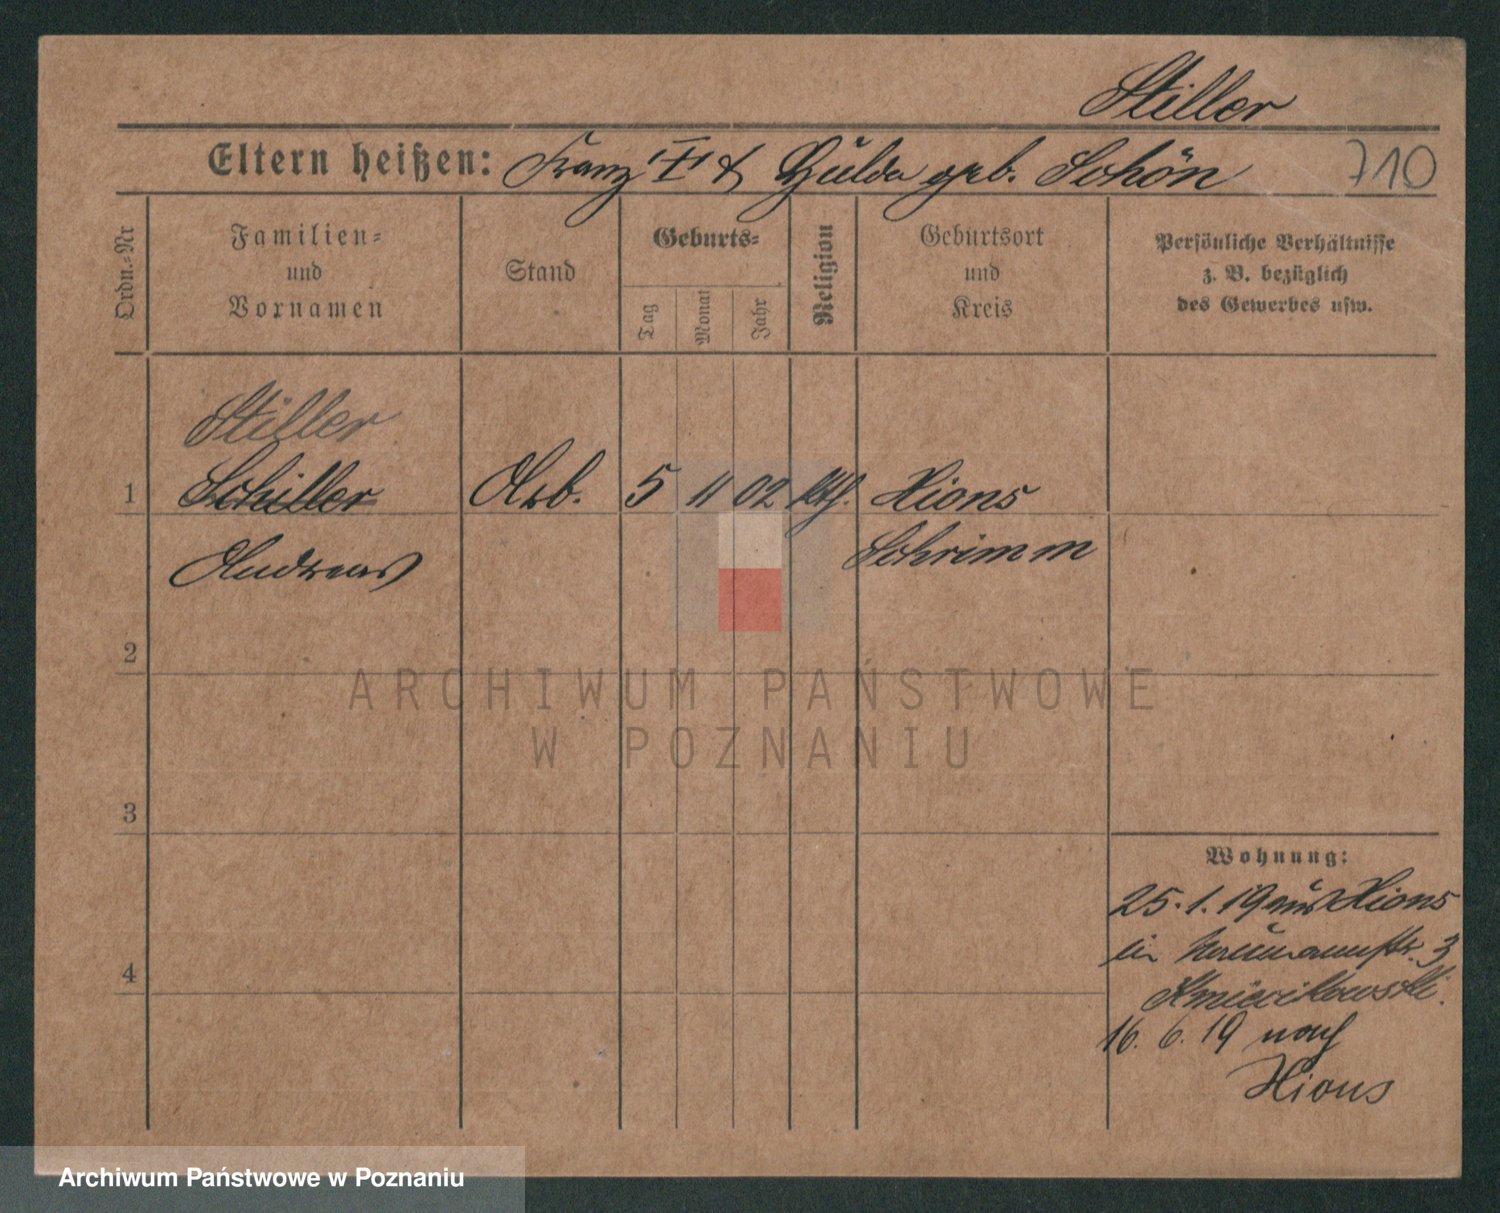 Stiller
Eltern heißen: Franz II & Hulda geb. Schön
710
Ordn.-Nr
Familien-
und
Vornamen
Stand
Geburts-
Tag
Monat
Jahr
Religion
Geburtsort
und
Kreis
Persönliche Verhältnisse
z. B. bezüglich
des Gewerbes usw.
Stiller
1 Schiller Arb. 5 11 02 kth. Xions
Andreas Schrimm
2
3
4
ARCHIWUM PAŃSTWOWE
W POZNANIU
Wohnung:
25. 1. 19 aus Xions
in Naumannstr. 3
16. 6. 19 nach
Xions
Archiwum Państwowe w Poznaniu